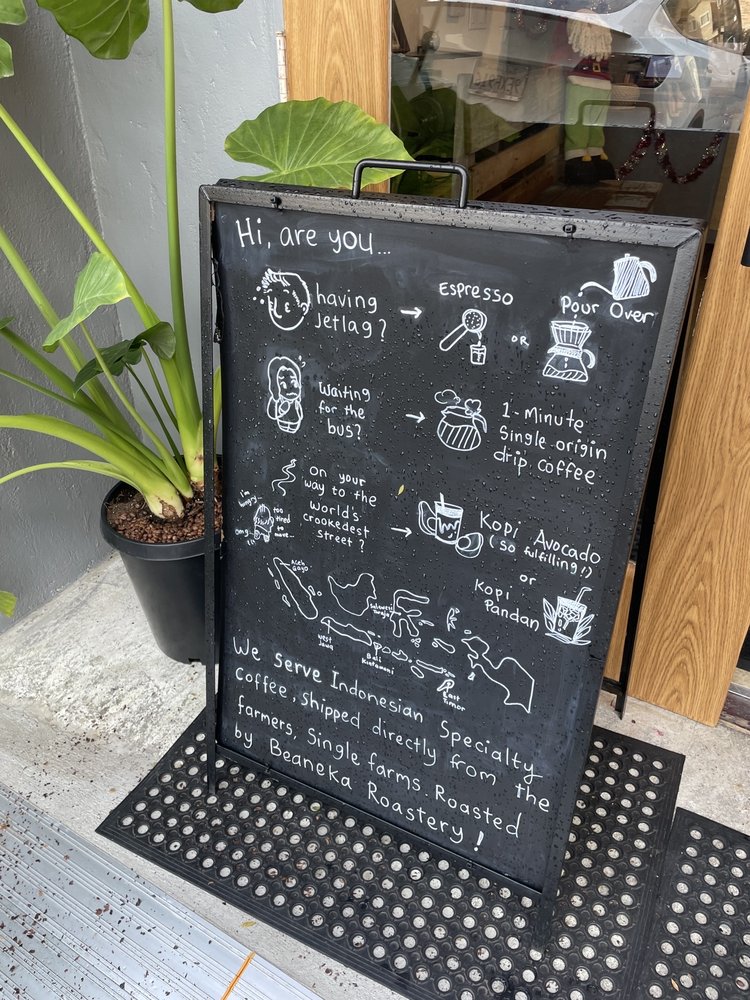 Hi, are you...
having
Jetlag?
Espresso
OR
Pour Over
Waiting
for the
bus?
1-Minute
Single origin
drip coffee
I'm
hungry~
omg!
too
tired
to
move...
on your
way to the
World's
crookedest
street?
Kopi Avocado
(So fulfilling!)
or
Kopi
Pandan
Aceh
Gayo
Sulawesi
Toraja
West
Jawa
Bali
Kintamani
East
Timor
We serve Indonesian Specialty
Coffee, shipped directly from the
farmers, Single farms. Roasted
by Beaneka Roastery!